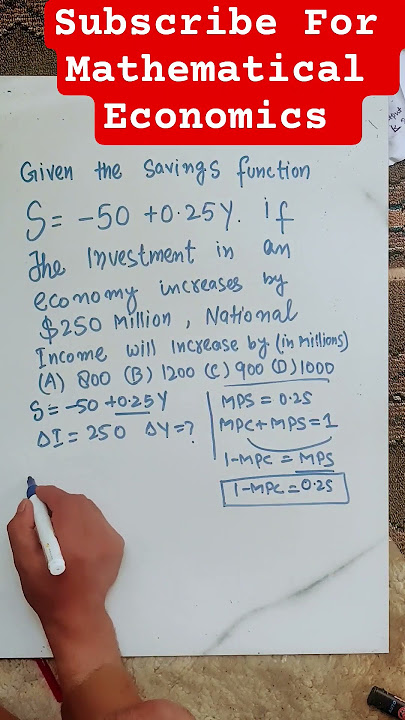 Subscribe For
Mathematical
Economics
Given the savings function
S = -50 + 0.25Y. if
the Investment in an
economy increases by
$250 Million, National
Income will Increase by (in Millions)
(A) 800 (B) 1200 (C) 900 (D) 1000
S = -50 + 0.25Y
ΔI = 250 ΔY = ?
MPS = 0.25
MPC + MPS = 1
1-MPC = MPS
1-MPC = 0.25